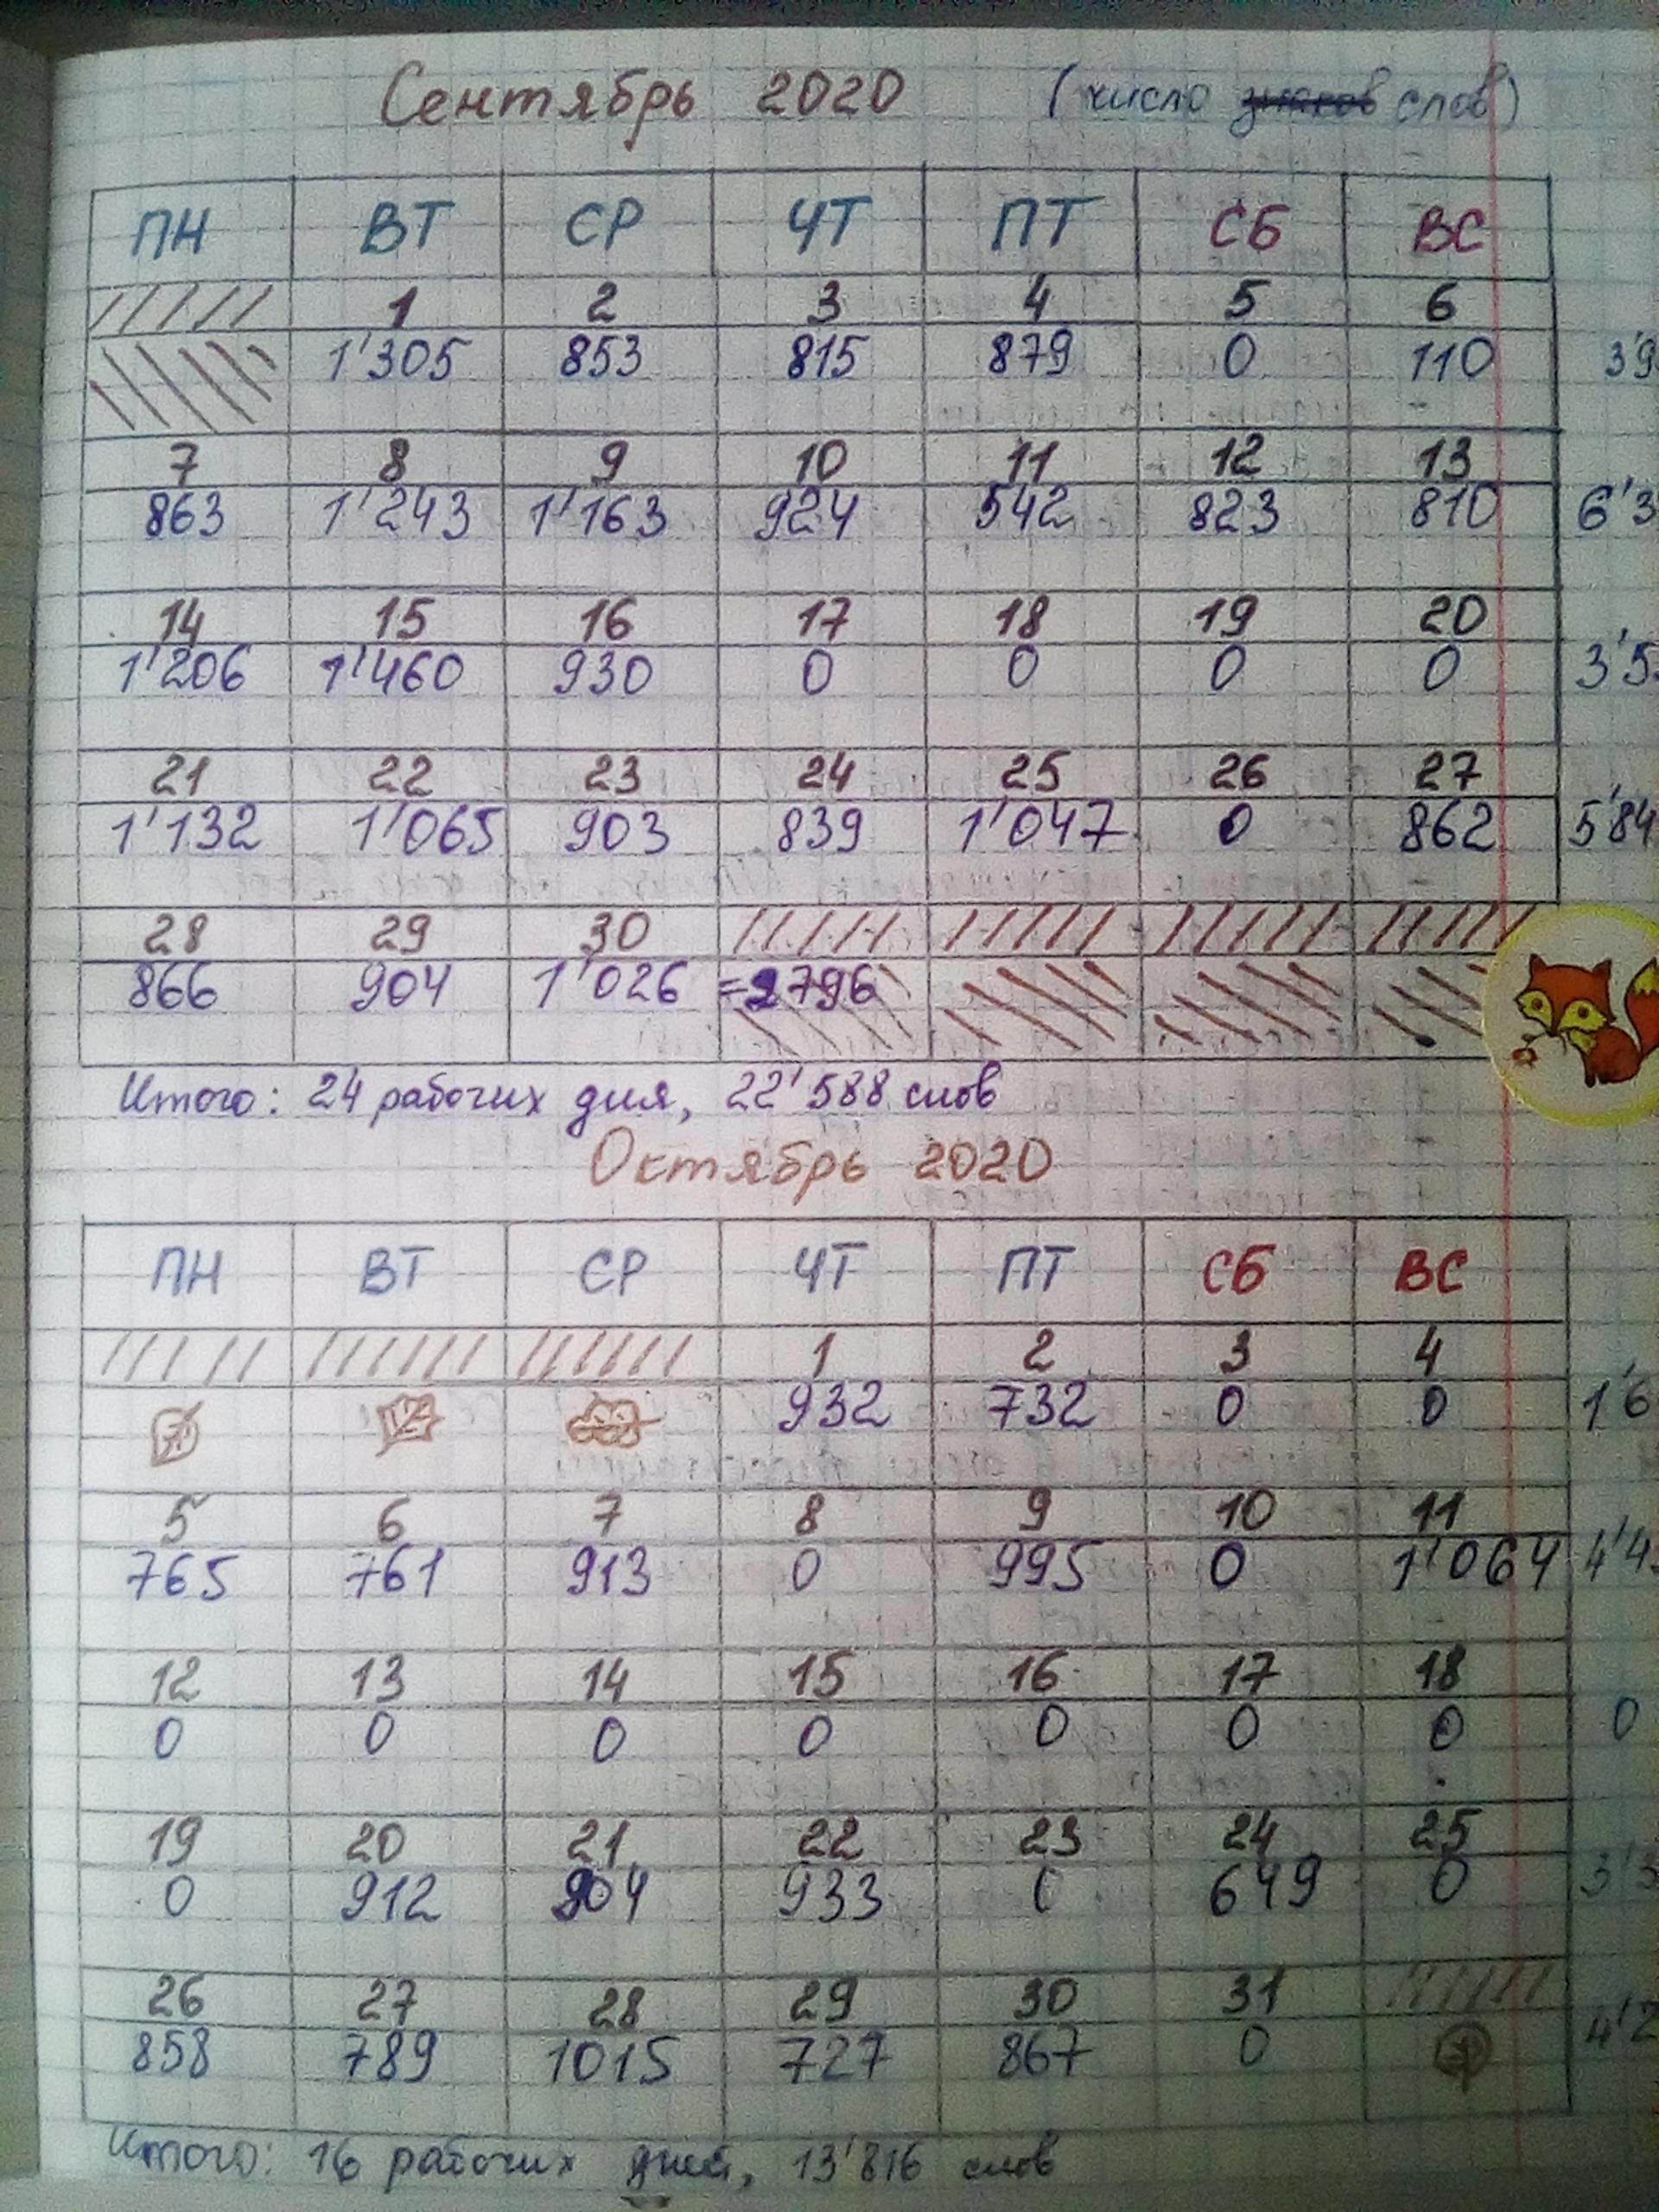 Сентябрь 2020 (число слов)
ПН ВТ СР ЧТ ПТ СБ ВС
1 2 3 4 5 6
1'305 853 815 879 0 110 3'9
7 8 9 10 11 12 13
863 1'243 1'163 924 542 823 810 6'3
14 15 16 17 18 19 20
1'206 1'460 930 0 0 0 0 3'5
21 22 23 24 25 26 27
1'132 1'065 903 839 1'047 0 862 5'84
28 29 30
866 904 1'026 =2796
Итого: 24 рабочих дня, 22'588 слов
Октябрь 2020
ПН ВТ СР ЧТ ПТ СБ ВС
1 2 3 4
932 732 0 0 1'6
5 6 7 8 9 10 11
765 761 913 0 995 0 1'064 4'4
12 13 14 15 16 17 18
0 0 0 0 0 0 0 0
19 20 21 22 23 24 25
0 912 904 933 0 649 0 3'3
26 27 28 29 30 31
858 789 1015 727 867 0 4'2
Итого: 16 рабочих дней, 13'816 слов